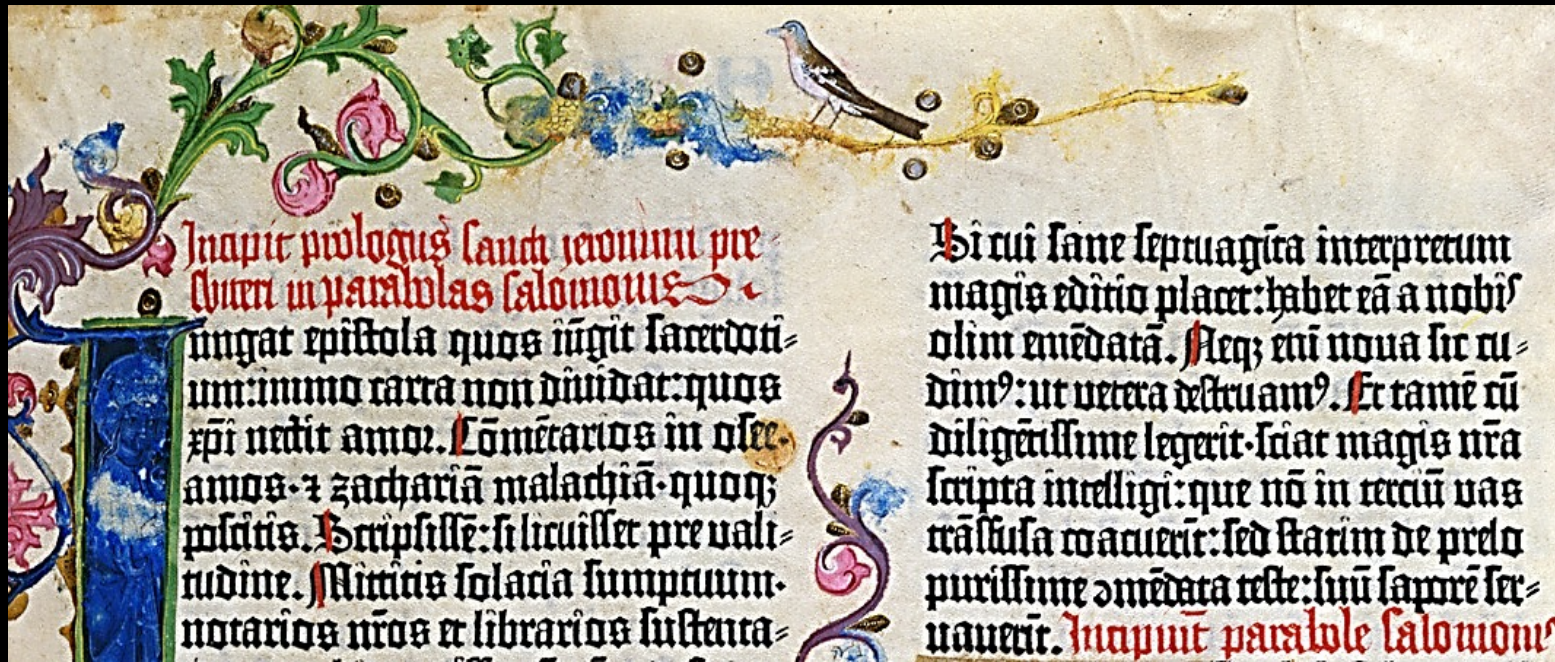 Incipit prologus sancti ieronimi pre
sbiteri in parabolas salomonis
Iungat epistola quos iūgit sacerdoti⸗
um: immo carta non diuidat: quos
xp̄i nectit amor. Cōmētarios in osee·
amos· ⁊ zachariā malachiā· quoqꝫ
poscitis. Scripsissē: si licuisset pre uali⸗
tudine. Mittitis solacia sumptuum·
notarios nr̄os et librarios sustenta⸗
Si cui sane septuagīta interpretum
magis editio placet: habet eā a nobis
olim emēdatā. Neqꝫ eni noua sic cu⸗
dimꝰ: ut uetera destruamꝰ. Et tamē cū
diligētissime legerit· sciat magis nr̄a
scripta intelligi: que nō in terciū uas
trāsfusa coacuerīt: sed statim de prelo
purissime ↄmēdata teste: suū saporē ser⸗
uauerīt. Incipiūt parabole salomonis